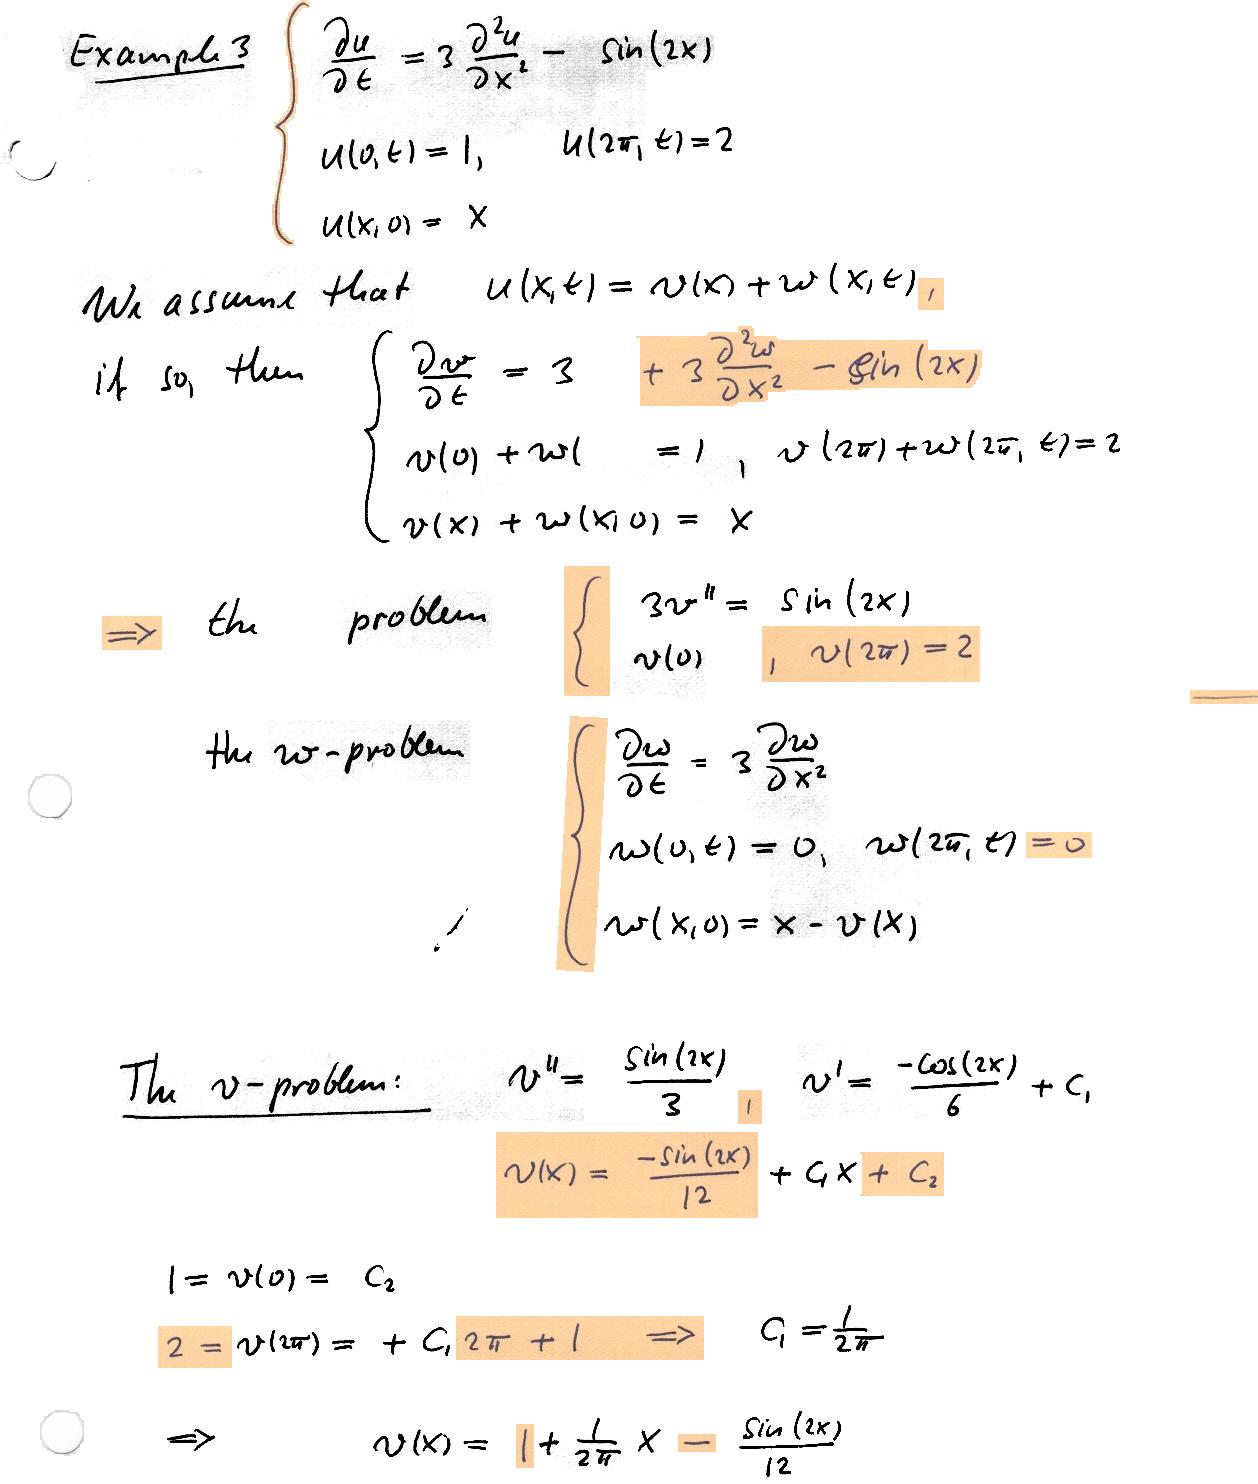 Example 3 { ∂u/∂t = 3 ∂²u/∂x² - sin(2x)
u(0,t) = 1, u(2π, t) = 2
u(x,0) = x
We assume that u(x,t) = v(x) + w(x,t),
if so, then { ∂w/∂t = 3 + 3 ∂²w/∂x² - sin(2x)
v(0) + w( = 1, v(2π) + w(2π, t) = 2
v(x) + w(x,0) = x
=> the problem { 3v'' = sin(2x)
v(0) , v(2π) = 2
the w-problem { ∂w/∂t = 3 ∂w/∂x²
w(0,t) = 0, w(2π, t) = 0
w(x,0) = x - v(x)
The v-problem: v'' = sin(2x)/3, v' = -cos(2x)/6 + C₁
v(x) = -sin(2x)/12 + C₁x + C₂
1 = v(0) = C₂
2 = v(2π) = + C₁ 2π + 1 => C₁ = 1/2π
=> v(x) = 1 + 1/2π x - sin(2x)/12